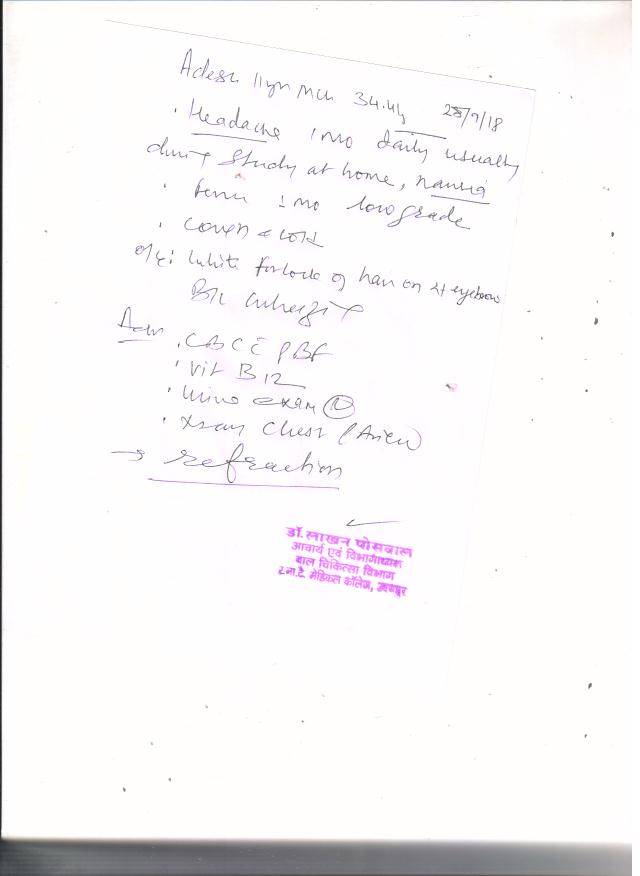 Adesh 11yr Mch 34.4kg 28/9/18
. Headache 1mo daily usually
during study at home, nausia
. Fever 1mo low grade
. Cough & cold
O/E: White forlock of hair on Lt eyebrow
B/L
Adv . CBC c̄ PBF
. Vit B12
. Urine exam (R)
. Xray Chest (PA view)
→ refraction
डॉ. लाखन पोसवाल
आचार्य एवं विभागाध्यक्ष
बाल चिकित्सा विभाग
र.ना.टै. मेडिकल कॉलेज, उदयपुर